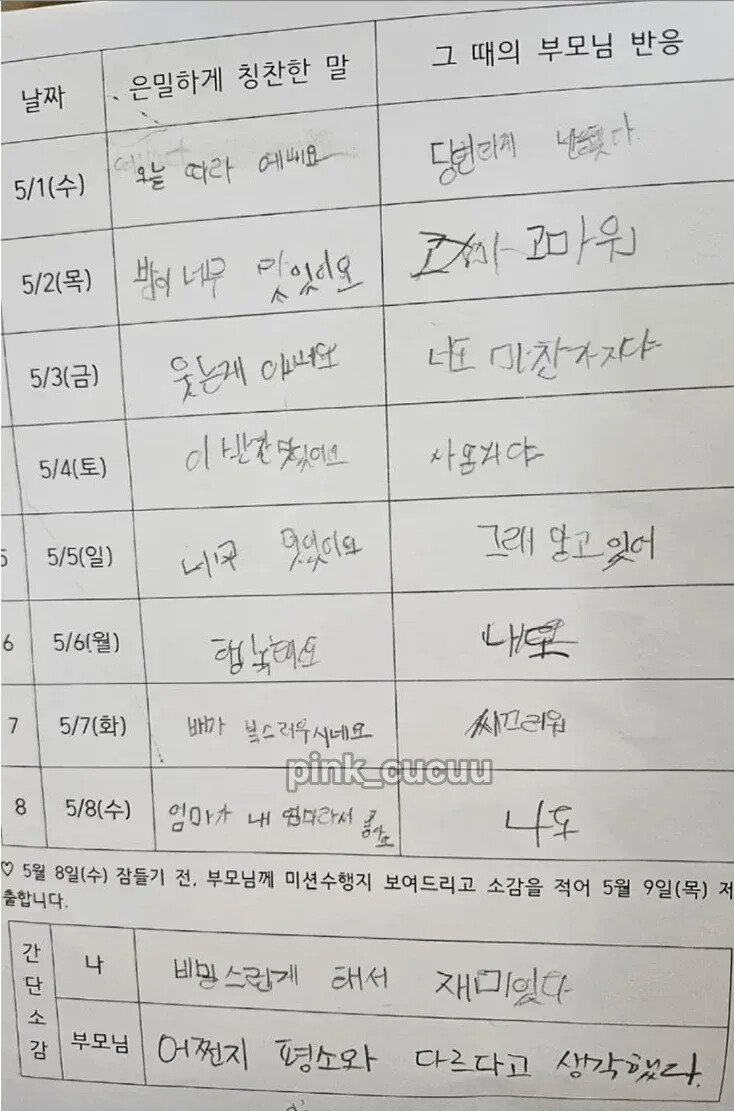 날짜 은밀하게 칭찬한 말 그 때의 부모님 반응
5/1(수) 오늘 따라 예뻐요 당번라게
5/2(목) 밥이 너무 맛있어요 고마워
5/3(금) 웃는게 너도 마찬가지야
5/4(토) 이 맛있어요
5/5(일) 너무 멋있어요 그래 알고 있어
6 5/6(월) 행복해요 나도
7 5/7(화) 배가 복스러우시네요 씨끄러워
pink_cucuu
8 5/8(수) 엄마가 내 엄마라서 좋아요 나도
♡ 5월 8일(수) 잠들기 전, 부모님께 미션수행지 보여드리고 소감을 적어 5월 9일(목) 제
출합니다.
간단소감
나 비밀스럽게 해서 재미있다
부모님 어쩐지 평소와 다르다고 생각했다.